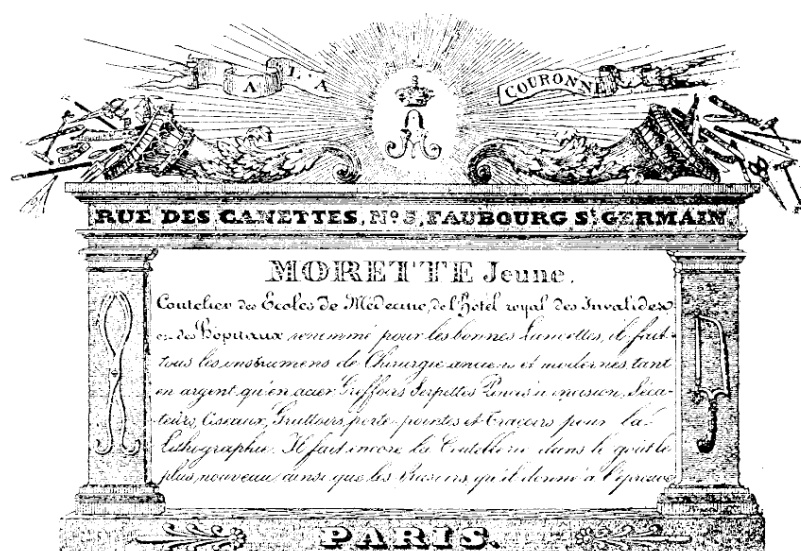 A LA COURONNE
RUE DES CANETTES, Nº 5, FAUBOURG St. GERMAIN
MORETTE Jeune.
Coutelier des Ecoles de Médecine, de l'Hotel royal des Invalides
et des Hopitaux renommé pour les bonnes Lancettes, il fait
tous les instrumens de Chirurgie anciens et modernes, tant
en argent qu'en acier Greffoirs Serpettes Pinces à incision, Séca-
teurs, Ciseaux, Grattoirs, porte-pointes et Traçoirs pour la
Lithographie. Il fait encore la Coutellerie dans le goût le
plus nouveau ainsi que les Rasoirs, qu'il donne à l'épreuve
PARIS.